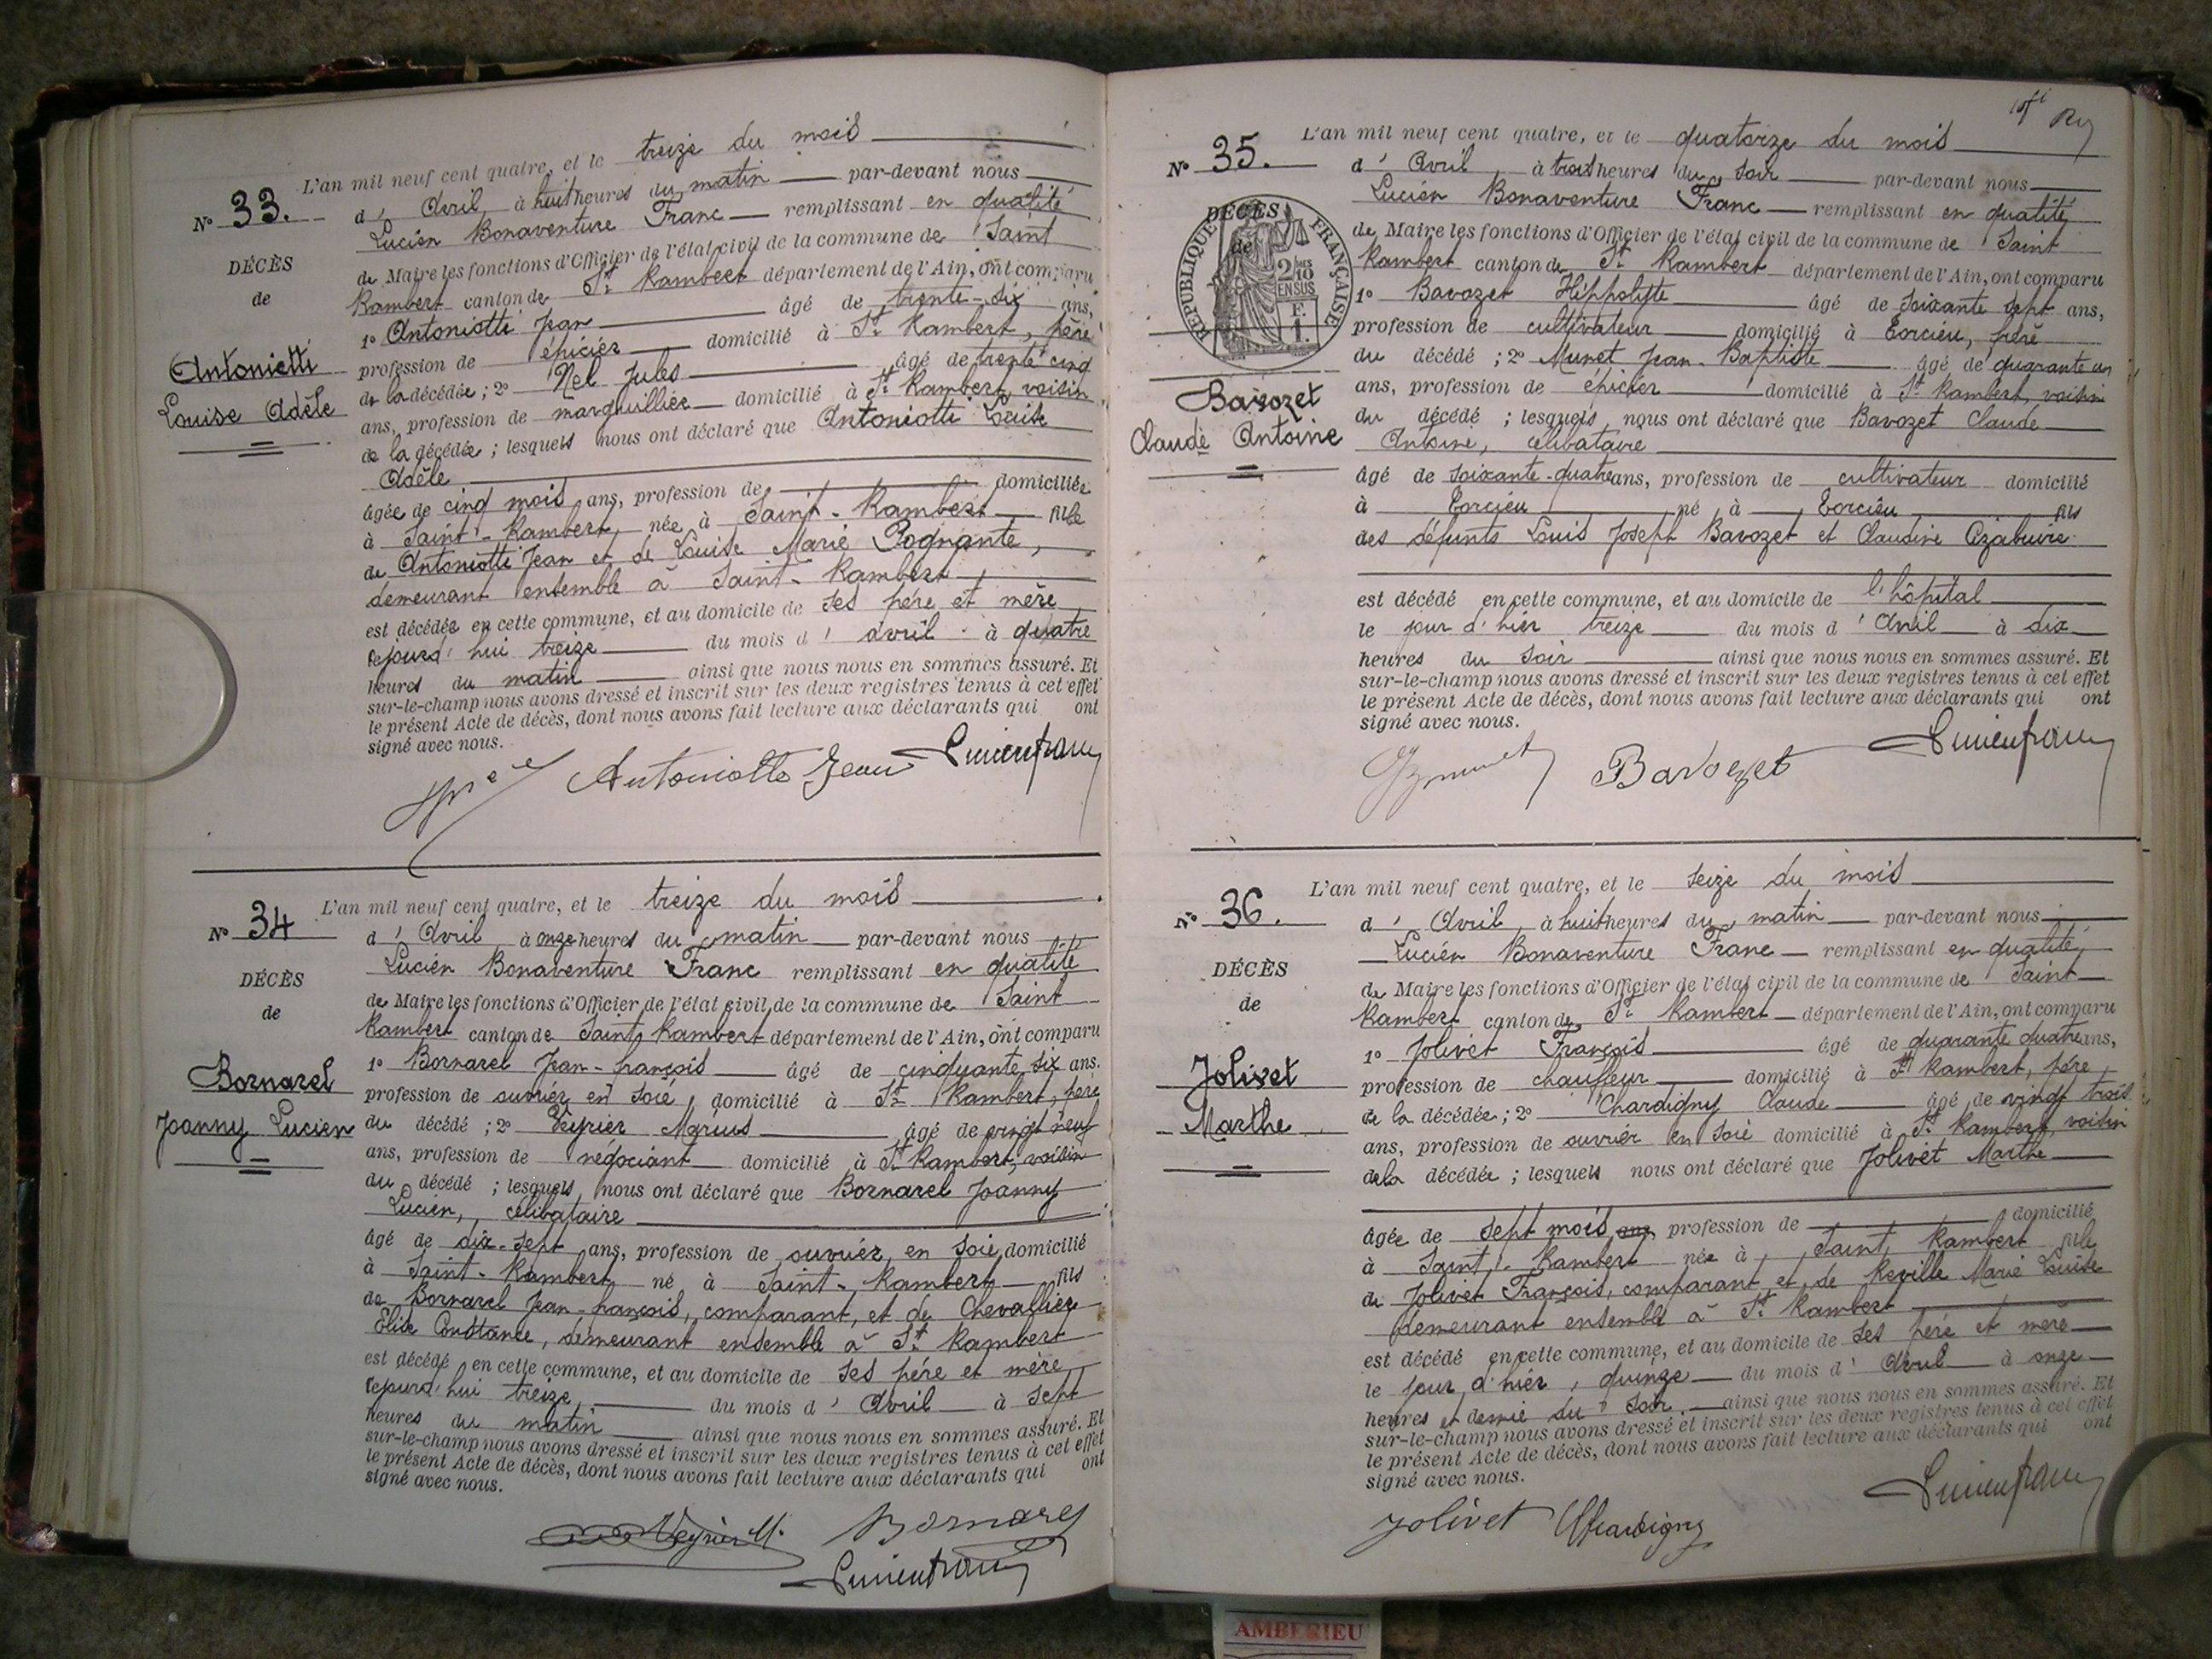 L'an mil neuf cent quatre, et le treize du mois
N° 33. d'Avril à huit heures du matin par-devant nous
Lucien Bonaventure Franc remplissant en qualité
DÉCÈS de Maire les fonctions d'Officier de l'état civil de la commune de Saint
de Rambert canton de St Rambert département de l'Ain, ont comparu
1° Antoniotti Jean âgé de trente-six ans,
Antoniotti profession de épicier domicilié à St Rambert, père
Louise Adèle de la décédée ; 2° Nel Jules âgé de trente cinq
ans, profession de marguillier domicilié à St Rambert, voisin
de la décédée ; lesquels nous ont déclaré que Antoniotti Louise
Adèle
âgée de cinq mois ans, profession de domiciliée
à Saint-Rambert, née à Saint-Rambert fille
de Antoniotti Jean et de Louise Marie Pognante,
demeurant ensemble à Saint-Rambert
est décédée en cette commune, et au domicile de ses père et mère
cejourd'hui treize du mois d'avril à quatre
heures du matin ainsi que nous nous en sommes assuré. Et
sur-le-champ nous avons dressé et inscrit sur les deux registres tenus à cet effet
le présent Acte de décès, dont nous avons fait lecture aux déclarants qui ont
signé avec nous.
Antoniotti Jean Lucien franc
L'an mil neuf cent quatre, et le treize du mois
N° 34 d'Avril à onze heures du matin par-devant nous
Lucien Bonaventure Franc remplissant en qualité
DÉCÈS de Maire les fonctions d'Officier de l'état civil de la commune de Saint
de Rambert canton de Saint Rambert département de l'Ain, ont comparu
1° Bornarel Jean-françois âgé de cinquante six ans.
Bornarel profession de ouvrier en soie, domicilié à St Rambert, père
Joanny Lucien du décédé ; 2° Veyrier Marius âgé de vingt neuf
ans, profession de négociant domicilié à St Rambert, voisin
du décédé ; lesquels nous ont déclaré que Bornarel Joanny
Lucien, célibataire
âgé de dix-sept ans, profession de ouvrier en soie, domicilié
à Saint-Rambert né à Saint-Rambert fils
de Bornarel Jean-françois, comparant, et de Chevallier
Elise Constance, demeurant ensemble à St Rambert
est décédé en cette commune, et au domicile de ses père et mère
cejourd'hui treize du mois d'Avril à sept
heures du matin ainsi que nous nous en sommes assuré. Et
sur-le-champ nous avons dressé et inscrit sur les deux registres tenus à cet effet
le présent Acte de décès, dont nous avons fait lecture aux déclarants qui ont
signé avec nous.
Veyrier M. Bornarel
Lucien franc
L'an mil neuf cent quatre, et le quatorze du mois
N° 35. d'Avril à trois heures du soir par-devant nous
Lucien Bonaventure Franc remplissant en qualité
DÉCÈS de Maire les fonctions d'Officier de l'état civil de la commune de Saint
de Rambert canton de St Rambert département de l'Ain, ont comparu
RÉPUBLIQUE FRANÇAISE
2/10 EN SUS
F. 1.
1° Bavozet Hippolyte âgé de soixante sept ans,
profession de cultivateur domicilié à Torcieu, frère
du décédé ; 2° Munet Jean-Baptiste âgé de quarante un
Bavozet ans, profession de épicier domicilié à St Rambert, voisin
Claude Antoine du décédé ; lesquels nous ont déclaré que Bavozet Claude
Antoine, célibataire
âgé de soixante-quatre ans, profession de cultivateur domicilié
à Torcieu né à Torcieu fils
des défunts Louis Joseph Bavozet et Claudine
est décédé en cette commune, et au domicile de l'hôpital
le jour d'hier treize du mois d'Avril à dix
heures du soir ainsi que nous nous en sommes assuré. Et
sur-le-champ nous avons dressé et inscrit sur les deux registres tenus à cet effet
le présent Acte de décès, dont nous avons fait lecture aux déclarants qui ont
signé avec nous.
Bavozet Lucien franc
L'an mil neuf cent quatre, et le seize du mois
N° 36. d'Avril à huit heures du matin par-devant nous
Lucien Bonaventure Franc remplissant en qualité
DÉCÈS de Maire les fonctions d'Officier de l'état civil de la commune de Saint
de Rambert canton de St Rambert département de l'Ain, ont comparu
1° Jolivet François âgé de quarante quatre ans,
Jolivet profession de chauffeur domicilié à St Rambert, père
Marthe de la décédée ; 2° Chardigny Claude âgé de vingt trois
ans, profession de ouvrier en soie domicilié à St Rambert, voisin
de la décédée ; lesquels nous ont déclaré que Jolivet Marthe
âgée de sept mois ans, profession de domicilié
à Saint-Rambert née à Saint Rambert fille
de Jolivet François, comparant et de Reville Marie Louise
demeurant ensemble à St Rambert
est décédé en cette commune, et au domicile de ses père et mère
le jour d'hier, quinze du mois d'Avril à onze
heures et demie du soir. ainsi que nous nous en sommes assuré. Et
sur-le-champ nous avons dressé et inscrit sur les deux registres tenus à cet effet
le présent Acte de décès, dont nous avons fait lecture aux déclarants qui ont
signé avec nous.
Jolivet Chardigny Lucien franc
AMBERIEU